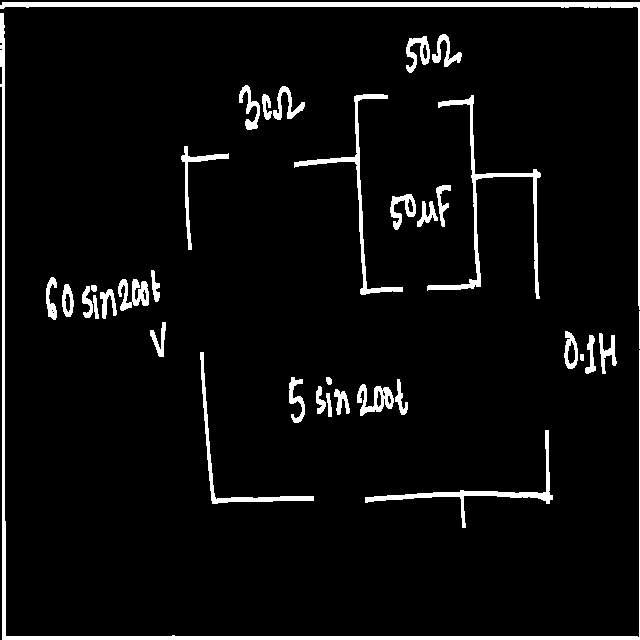 50Ω
30Ω
50μF
60 sin200t
V
0.1H
5 sin 200t